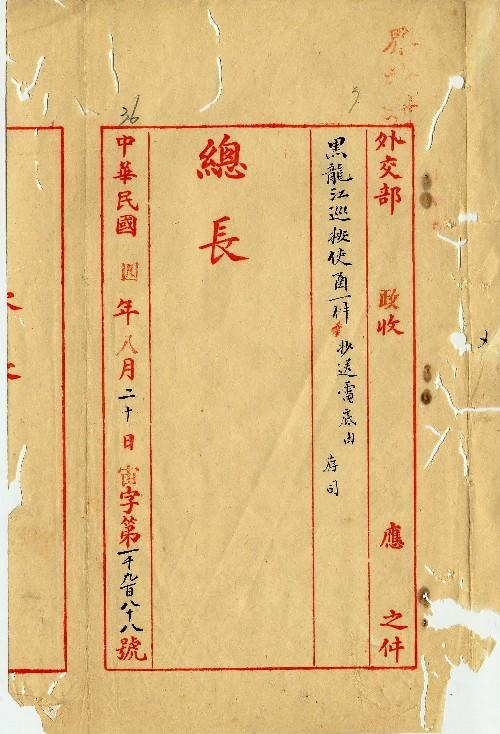 外交部 政收 應 之件
黑龍江巡按使函一件 抄送電底由 存司
總長
中華民國 四 年 八 月 二十 日 字第 一千九百八十八 號
36